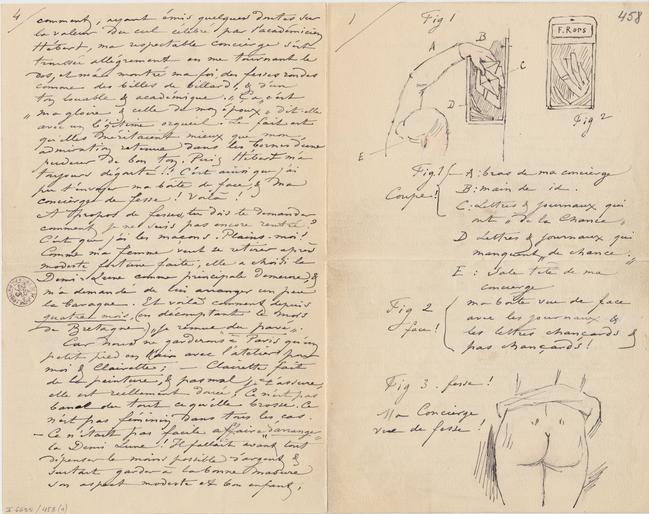 4/
comment, ayant émis quelques doutes sur
la valeur du cul célébré par l'académicien
Hébert, ma respectable concierge s'est
troussée allègrement en me tournant le
dos, et m'a montré ma foi, des fesses rondes
comme des billes de billard, & d'un
ton louable & académique. „Ça c'est
„ma gloire & celle de mon époux„ dit-elle
avec un légitime orgueil. Le fait est
qu'elles méritaient mieux que mon
admiration retenue dans les bornes d'une
pudeur de bon ton. Puis Hébert m'a
toujours dégoûté!! C'est ainsi que j'ai
pu t'envoyer ma boîte de face, & ma
concierge de fesse! Voilà!
A propos de fesses, tu dois te demander
comment je ne suis pas encore rentré?
C'est que j'ai les maçons. Plains-moi!
Comme ma femme veut se retirer après
modeste fortune faite, elle a choisi la
Demi-Lune comme principale demeure, &
m'a demandé de lui arranger un peu
la baraque. Et voilà comment depuis
quatre mois, (en décomptant le mois
de Bretagne) je
Car nous ne garderons à Paris qu'un
petit pied en l'air avec l'atelier pour
moi & Clairette; — Clairette fait
de la peinture, & pas mal je t'assure,
elle est réellement douée! Ce n'est pas
banal du tout ce qu'elle brosse. Ce
n'est pas féminin dans tous les cas.
— Ce n'était pas facile affaire d'arranger
la Demi Lune!! Il fallait avant tout
dépenser le moins possible d'argent &
surtout garder à la bonne masure
son aspect modeste et bon enfant,
I 6655 / 458 (a)
1
458
Fig 1
A
B
C
D
E
F. ROPS
Fig 2
Fig. 1
Coupe!
A: bras de ma concierge
B: main de id.
C: Lettres & Journaux qui
ont „de la Chance„
D Lettres & Journaux qui
manquent „de chance.„
E: Sale tête de ma
concierge
Fig 2
face!
ma boîte vue de face
avec les journaux &
les lettres chançards &
pas chançards!
Fig 3. fesse!
Ma Concierge
vue de fesse!